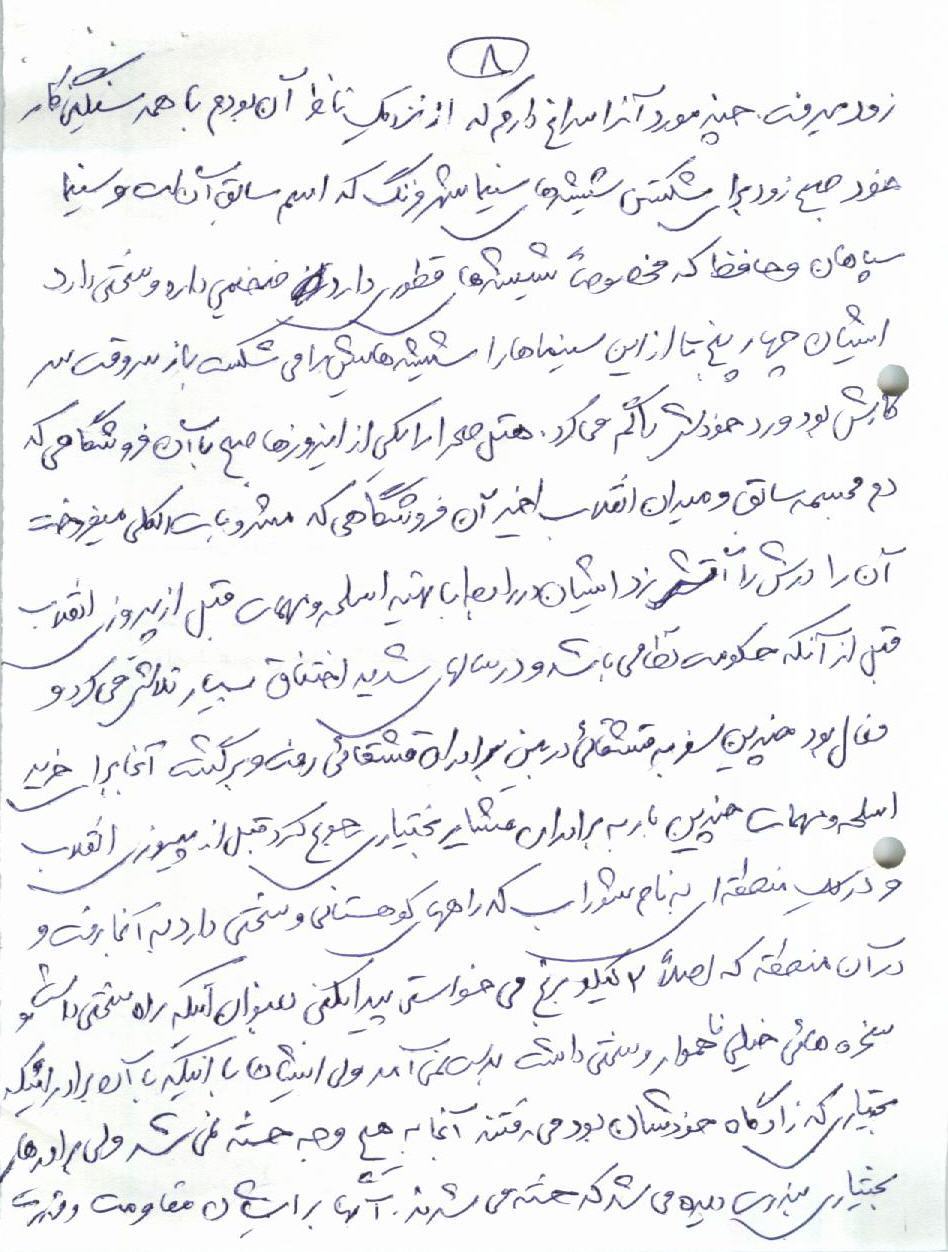 ۸
زود میرفت. چند مورد آنرا سراغ دارم که از نزدیک ناظر آن بودم با همه سنگینی کار
خود صبح زود برای شکستن شیشه‌های سینما شهر فرنگ که اسم سابق آن است و سینما
سپاهان و حافظ که مخصوصاً شیشه‌های قطوری دارد ضخیمی دارد و سختی دارد
ایشان چهار پنج تا از این سینماها را شیشه‌هایش را می شکست باز سر وقت سر
کارش بود و رد خودش را گم می کرد. هتل صحرا را یکی از این روزها صبح با آن فروشگاهی که
دم مجسمه سابق و میدان انقلاب اخیر آن فروشگاهی که مشروبات الکلی میفروخت
آن را درش را آتش زد ایشان در رابطه با تهیه اسلحه و مهمات قبل از پیروزی انقلاب
قبل از آنکه حکومت نظامی باشد و در سالهای شدید اختناق بسیار تلاش می کرد و
فعال بود چندین سفر به قشقائی در بین برادران قشقائی رفت و برگشت آنجا برای خرید
اسلحه و مهمات چندین بار به برادران عشایر بختیاری رجوع کرد قبل از پیروزی انقلاب
و در یک منطقه ای به نام شوراب که راههای کوهستانی و سختی دارد به آنجا رفت و
در آن منطقه که اصلاً ۲ کیلو برنج می خواستی پیدا بکنی بعنوان اینکه راه سختی داشت و
صخره هائی خیلی ناهموار و سختی داشت بدست نمی آمد ولی ایشان با اینکه با آن برادرانیکه
بختیاری که زادگاه خودشان بود می رفتند آنجا به هیچ وجه خسته نمی شد ولی برادرهای
بختیاری بندرت دیده می شد که خسته می شدند. آنها برایشان مقاومت و قدرت